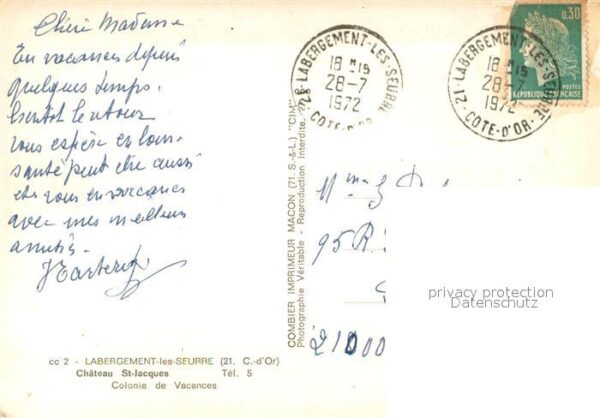 Chère Madame
En vacances depuis
quelques temps.
bientôt le retour
vous espère en bonne
santé peut être aussi
etes vous en vacances
avec mes meilleurs
amitiés.
LABERGEMENT-LES-SEURRE
18 H 15
28-7
1972
21 CÔTE-D'OR
LABERGEMENT-LES-SEURRE
18 H 15
28-7
1972
21 CÔTE-D'OR
0,30
POSTES
REPUBLIQUE FRANÇAISE
COMBIER IMPRIMEUR MACON (71. S.-&-L.) "CIM"
Photographie Véritable - Reproduction Interdite.
Mme
95 R
21000
privacy protection
Datenschutz
cc 2 - LABERGEMENT-les-SEURRE (21. C.-d'Or)
Château St-Jacques Tél. 5
Colonie de Vacances